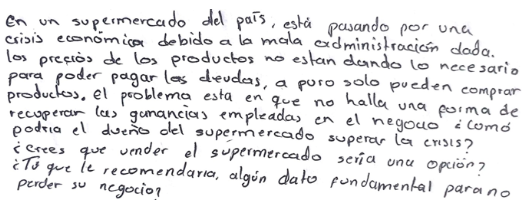 En un supermercado del país, está pasando por una
crisis económica debido a la mala administración dada.
los precios de los productos no estan dando lo necesario
para poder pagar las deudas, a puro solo pueden comprar
productos. el problema esta en que no halla una forma de
recuperar las ganancias empleadas en el negocio ¿Cómo
podría el dueño del supermercado superar la crisis?
¿crees que vender el supermercado sería una opción?
¿Tú que le recomendaria, algún dato fundamental para no
perder su negocio?